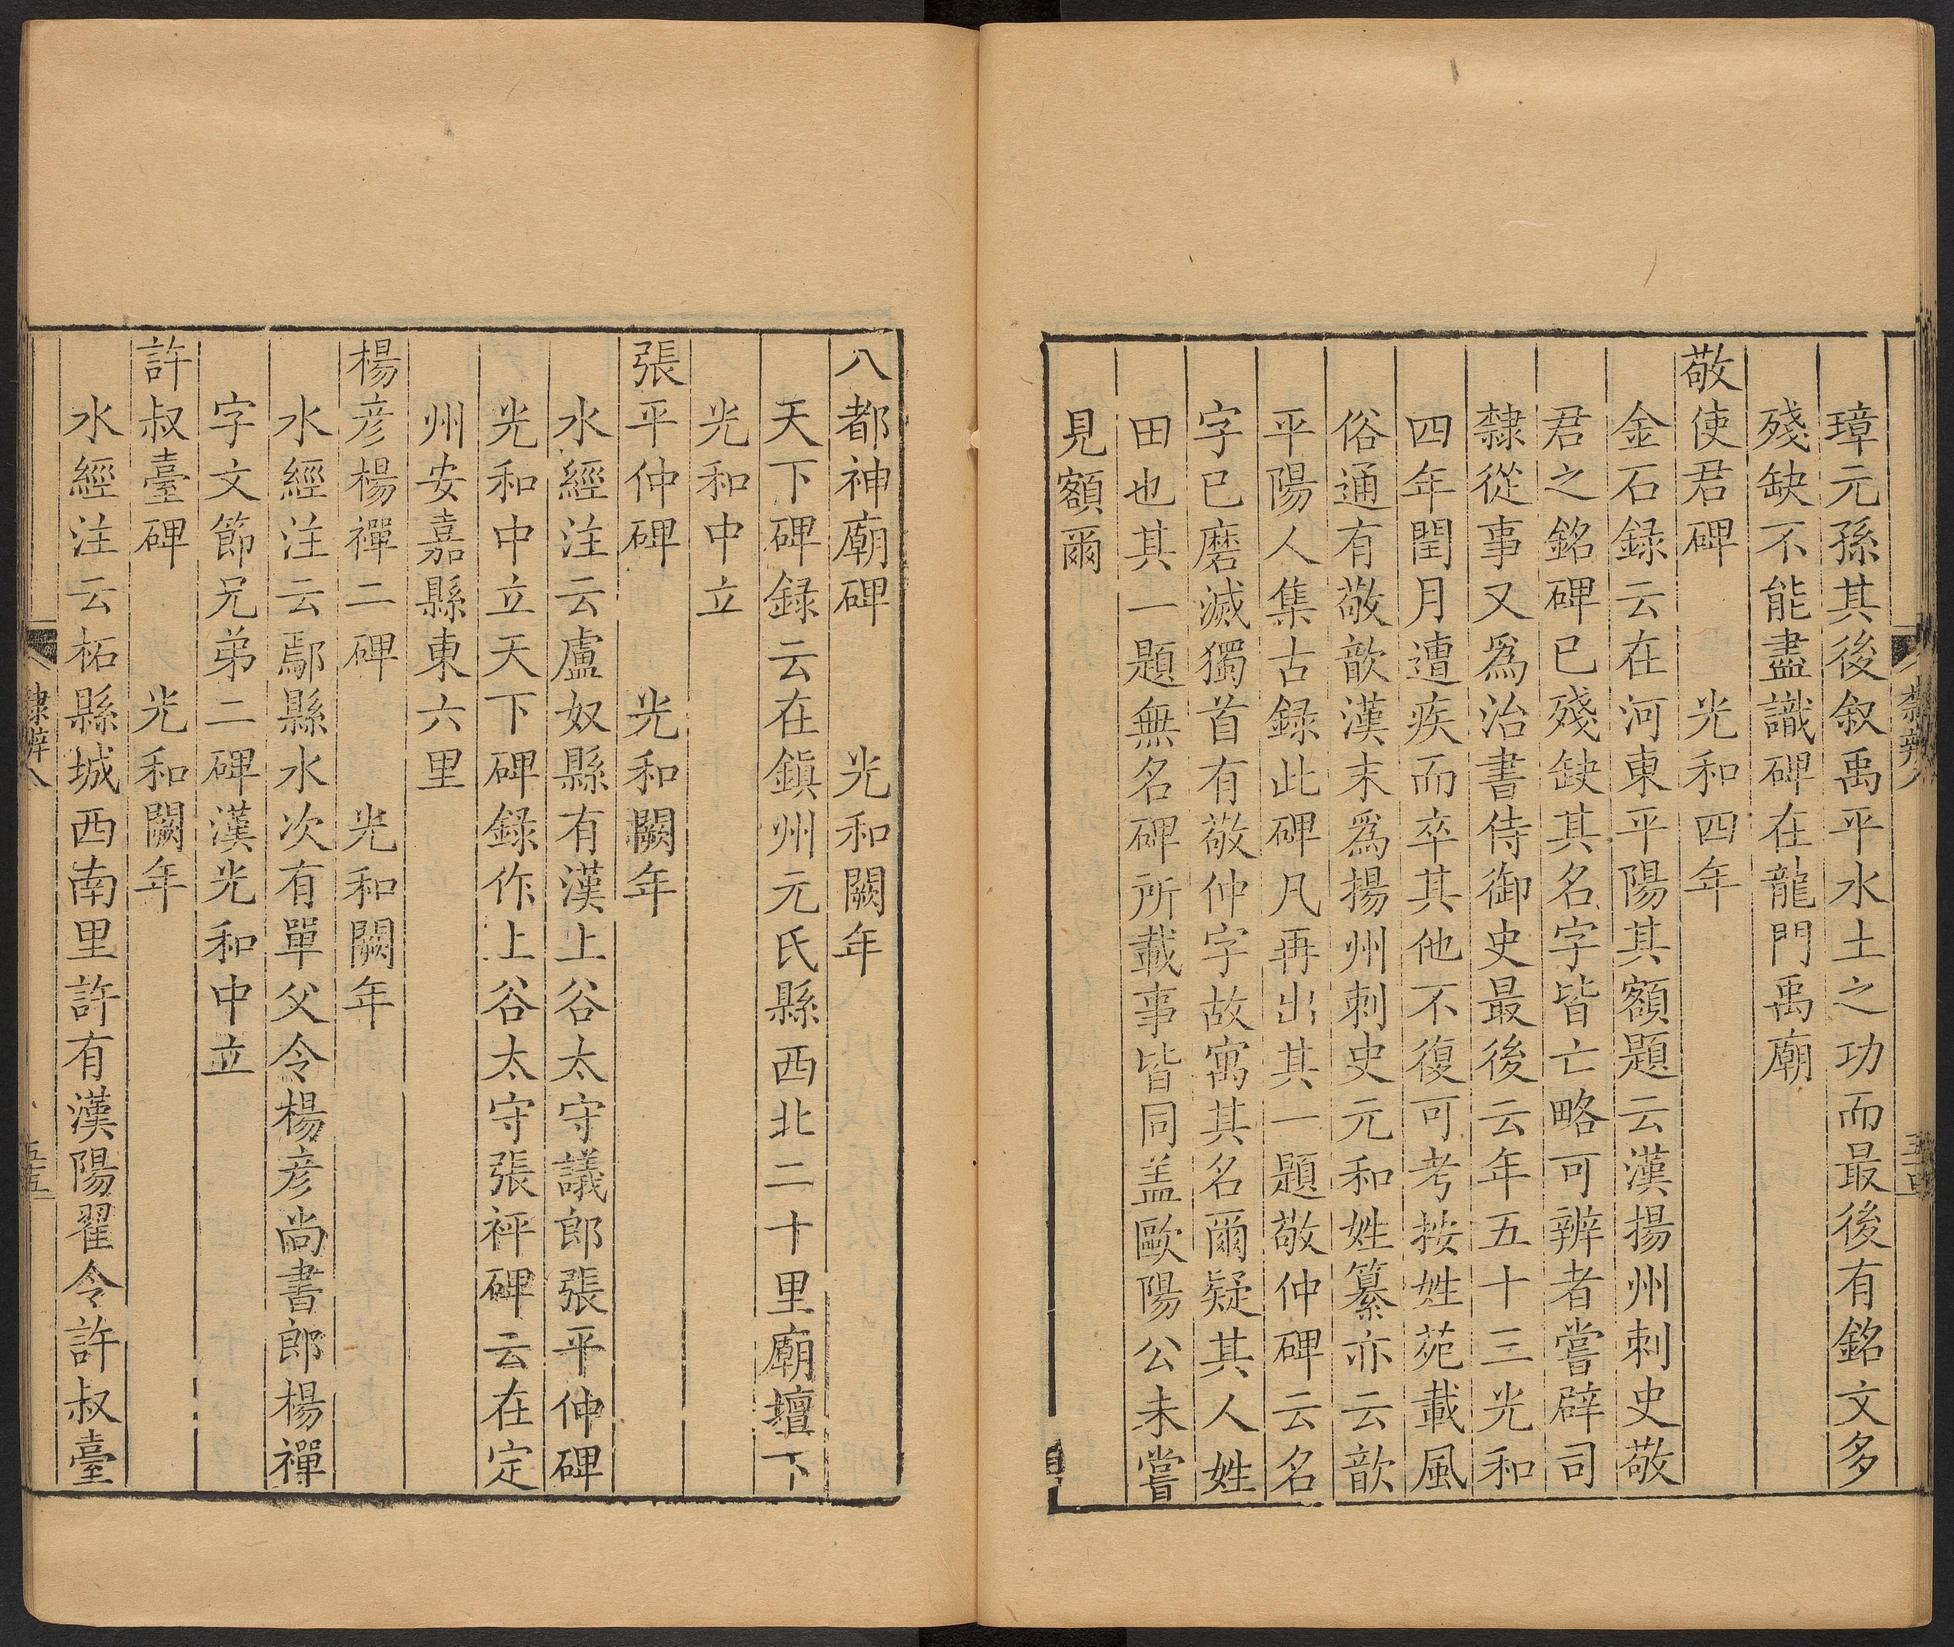 璋元孫其後叙禹平水土之功而最後有銘文多
殘缺不能盡識碑在龍門禹廟
敬使君碑　光和四年
金石録云在河東平陽其額題云漢揚州刺史敬
君之銘碑已殘缺其名字皆亡略可辨者嘗辟司
隸從事又爲治書侍御史最後云年五十三光和
四年閏月遭疾而卒其他不復可考按姓苑載風
俗通有敬歆漢末爲揚州刺史元和姓纂亦云歆
平陽人集古録此碑凡再出其一題敬仲碑云名
字已磨滅獨首有敬仲字故寓其名爾疑其人姓
田也其一題無名碑所載事皆同盖歐陽公未嘗
見額爾
八都神廟碑　光和闕年
天下碑録云在鎮州元氏縣西北二十里廟壇下
光和中立
張平仲碑　光和闕年
水經注云盧奴縣有漢上谷太守議郎張平仲碑
光和中立天下碑録作上谷太守張祁碑云在定
州安嘉縣東六里
楊彦楊禪二碑　光和闕年
水經注云鄢縣水次有單父令楊彦尚書郎楊禪
字文節兄弟二碑漢光和中立
許叔臺碑　光和闕年
水經注云柘縣城西南里許有漢陽翟令許叔臺
隸辨八
五五